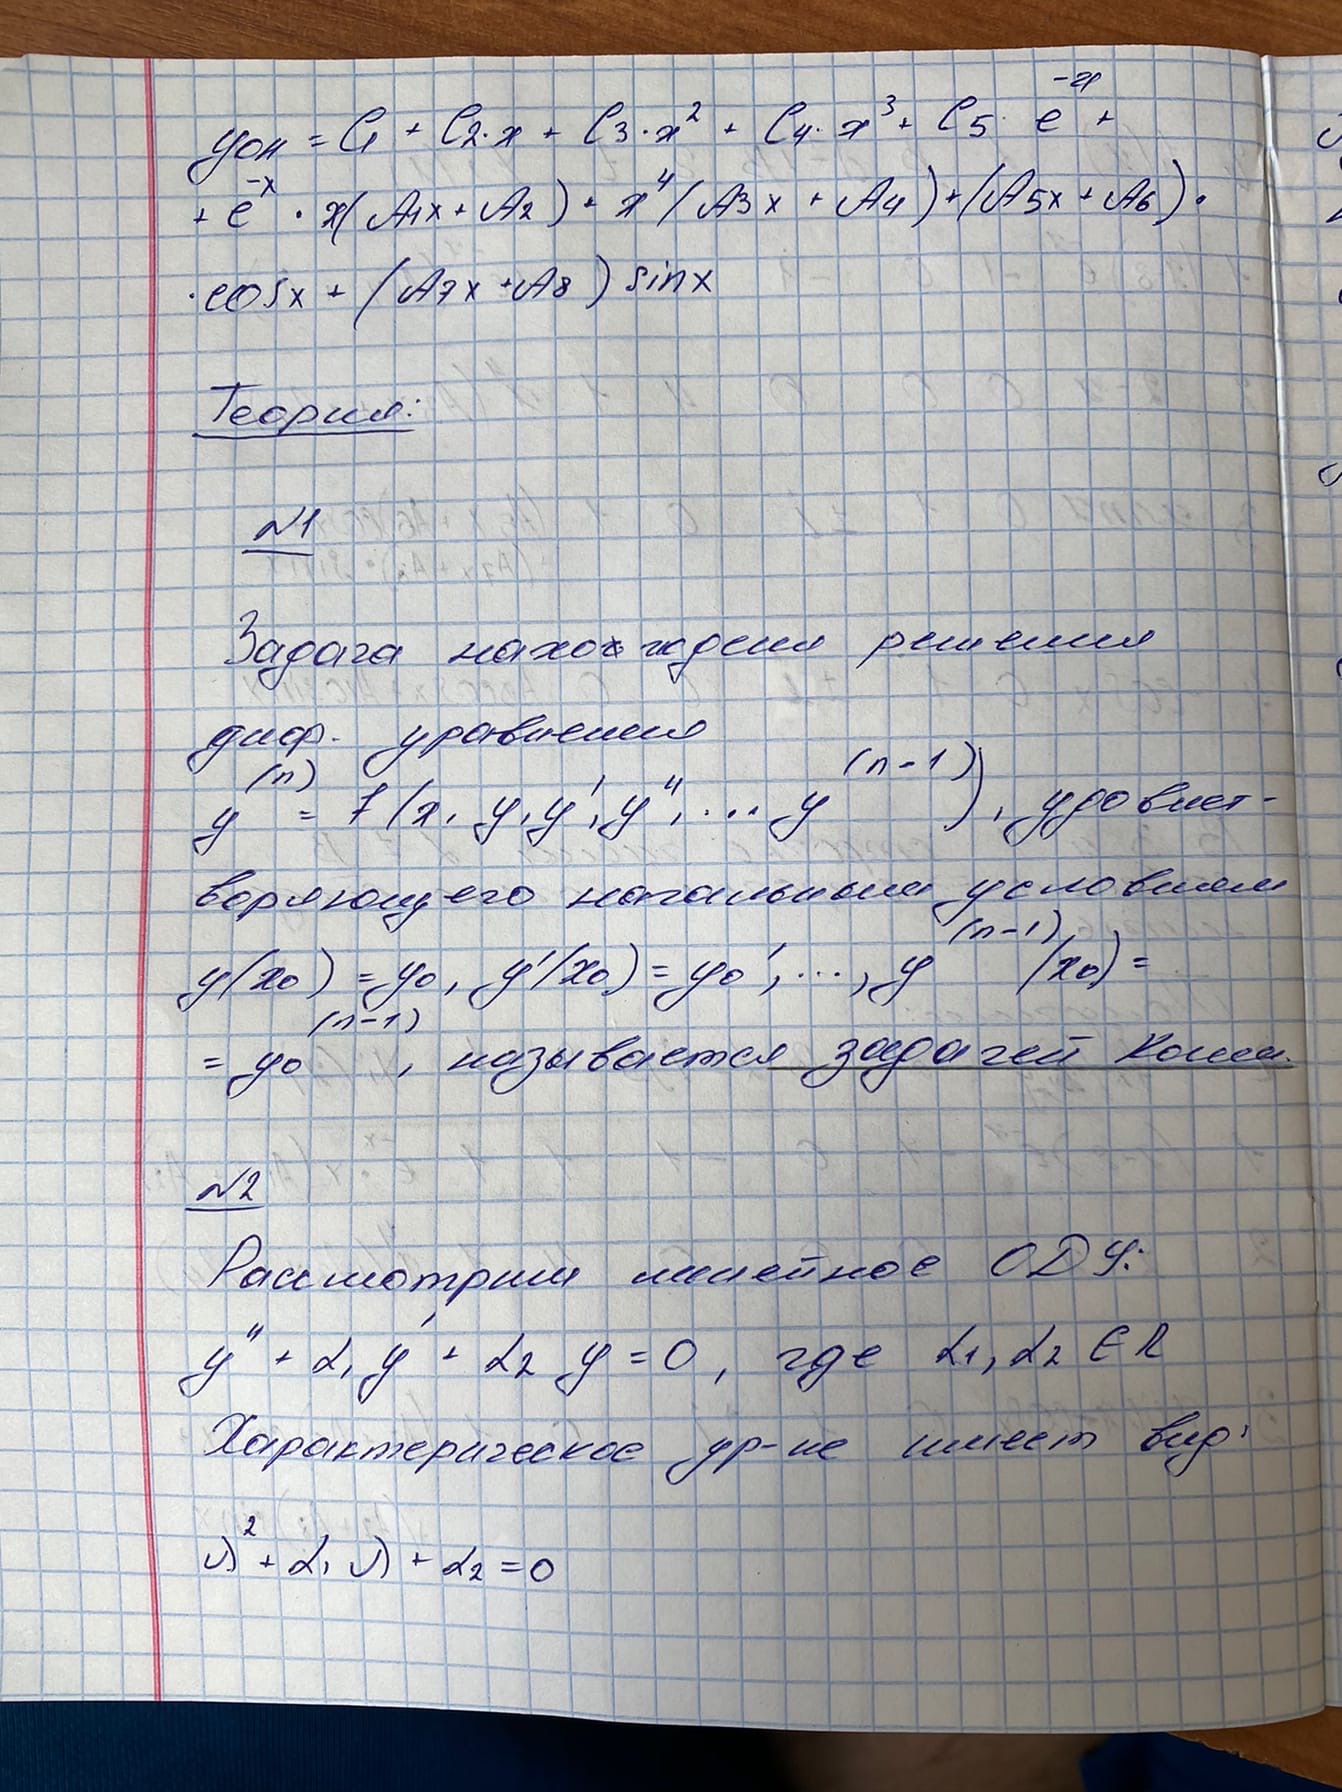 yон = C₁ + C₂·x + C₃·x² + C₄·x³ + C₅·e⁻ˣ +
+ e⁻ˣ · x(A₁x + A₂) + x⁴(A₃x + A₄) + (A₅x + A₆)·
·cosx + (A₇x + A₈) sinx
Теория:
№1
Задача нахождения решения
диф. уравнения
y⁽ⁿ⁾ = f(x, y, y', y'', ... y⁽ⁿ⁻¹⁾), удовлет-
воряющего начальным условиям
y(x₀) = y₀, y'(x₀) = y₀', ..., y⁽ⁿ⁻¹⁾(x₀) =
= y₀⁽ⁿ⁻¹⁾, называется задачей Коши.
№2
Рассмотрим линейное ОДУ:
y'' + α₁y' + α₂ y = 0, где α₁, α₂ ∈ R
Характерическое ур-ие имеет вид:
λ² + α₁ λ + α₂ = 0